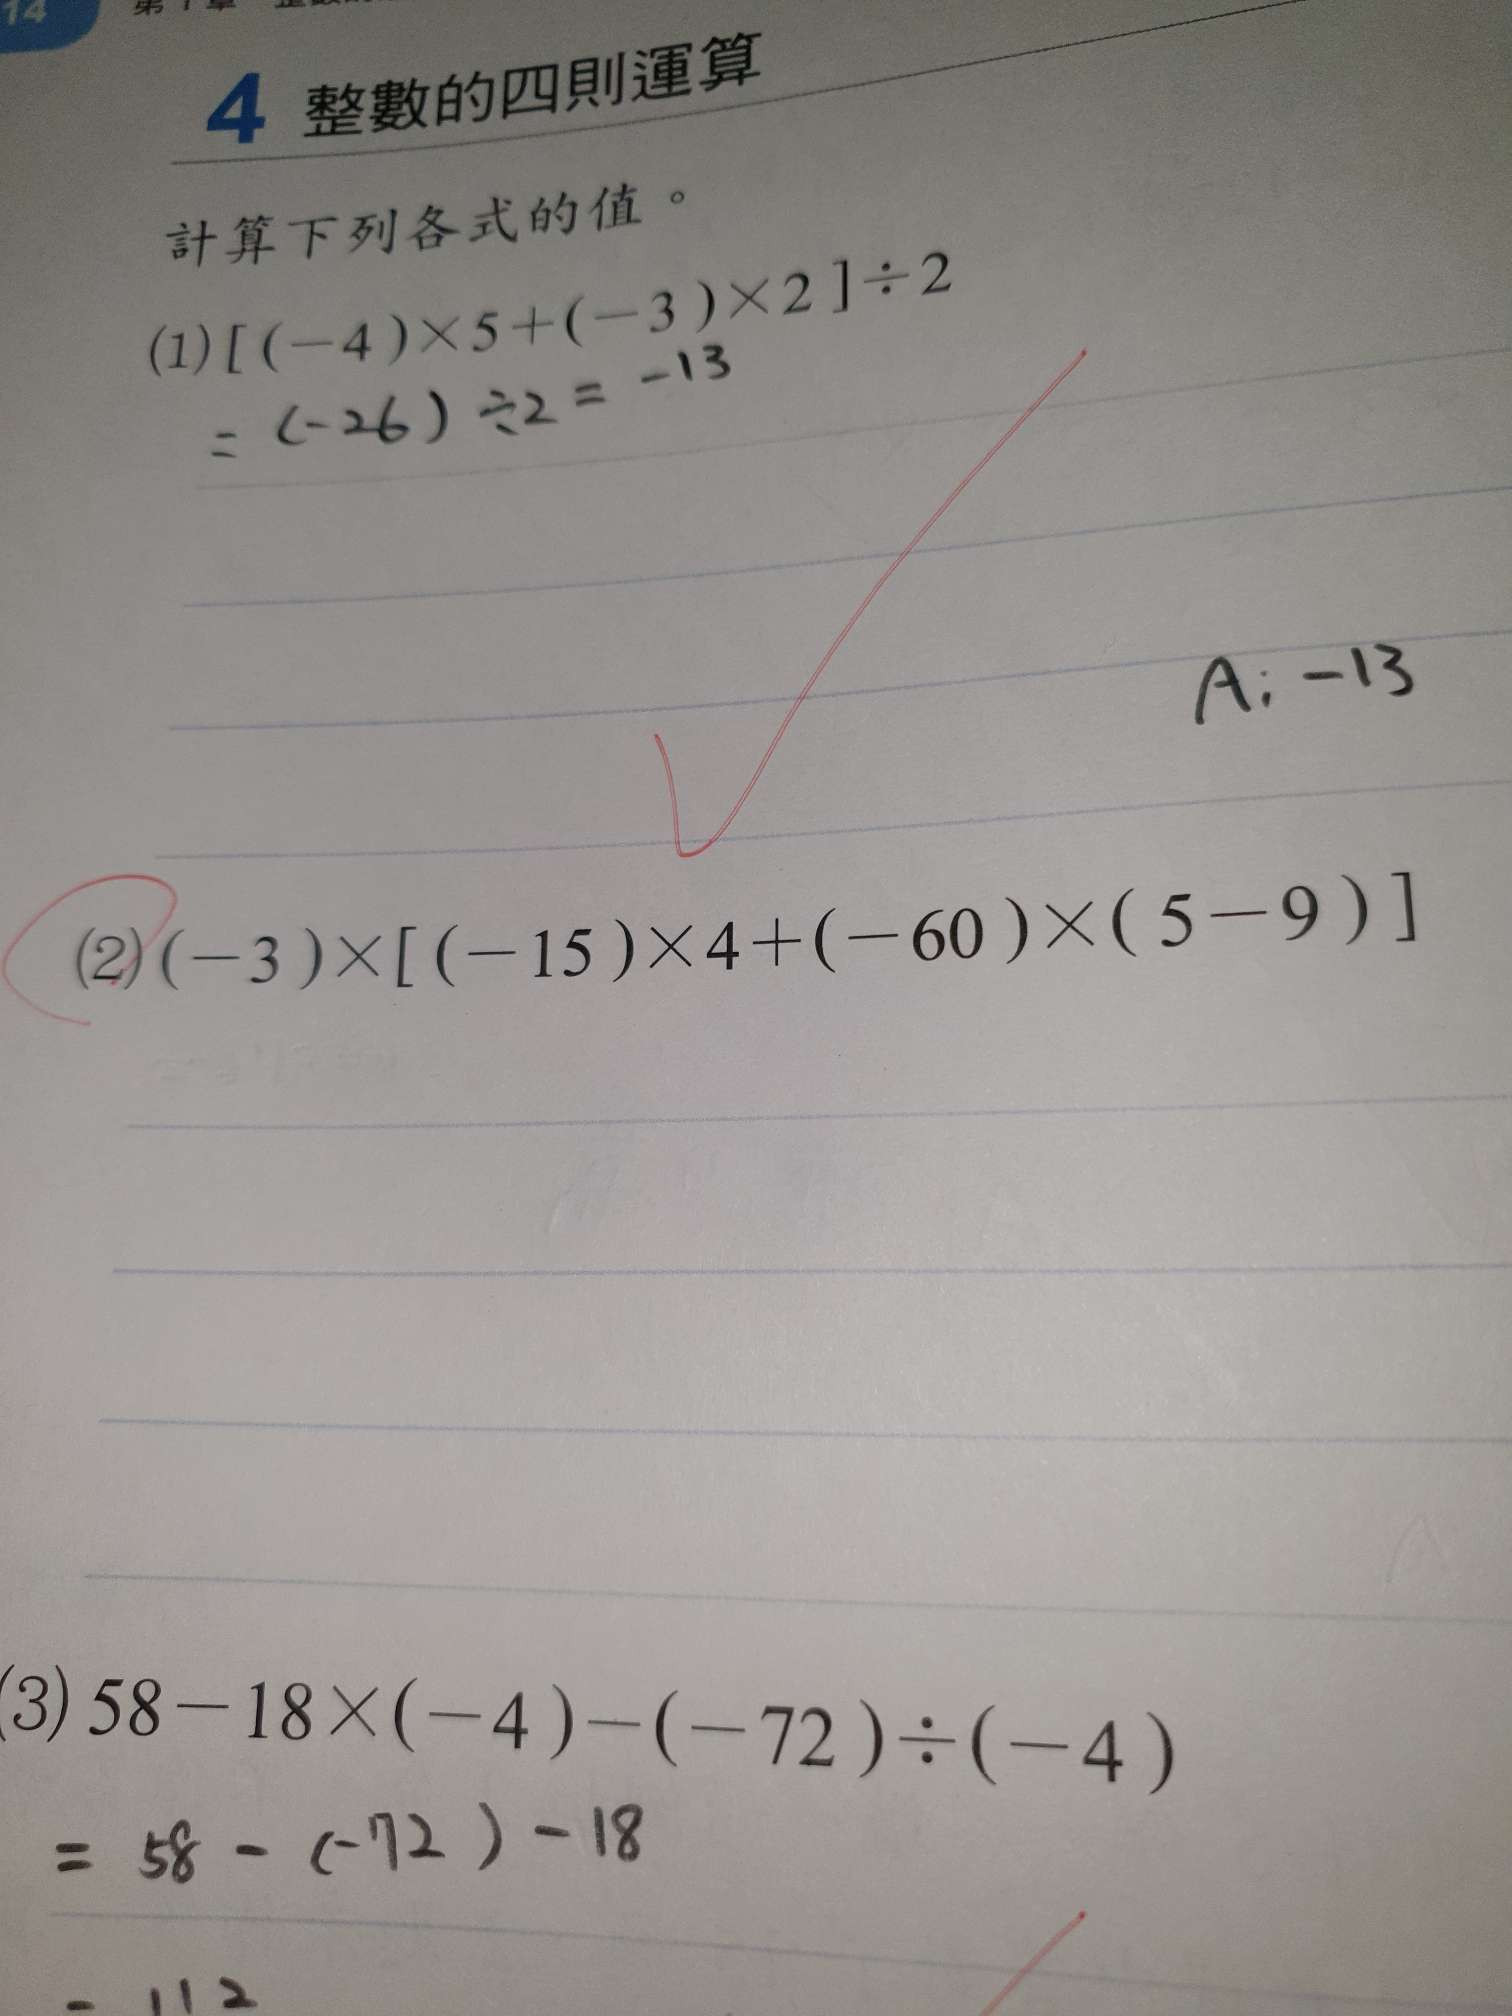 14 第1章
4 整數的四則運算
計算下列各式的值。
(1)[(-4)×5+(-3)×2]÷2
= (-26) ÷2 = -13
A: -13
(2)(-3)×[(-15)×4+(-60)×(5-9)]
(3)58-18×(-4)-(-72)÷(-4)
= 58 - (-72) - 18
= 112